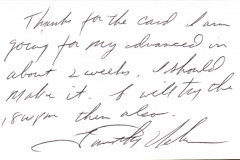 Thanks for the card I am
going for my advanced in
about 2 weeks. I should
make it. I will try the
18wpm then also.
Timothy